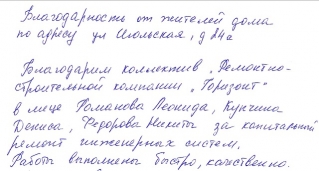 Благодарность от жителей дома
по адресу ул Июльская, д 84а
Благодарим коллектив „Ремонтно-
строительной компании „Горизонт"
в лице Романова Леонида, Кунгина
Дениса, Федорова Никиты за капитальный
ремонт инженерных систем.
Работы выполнены быстро, качественно.